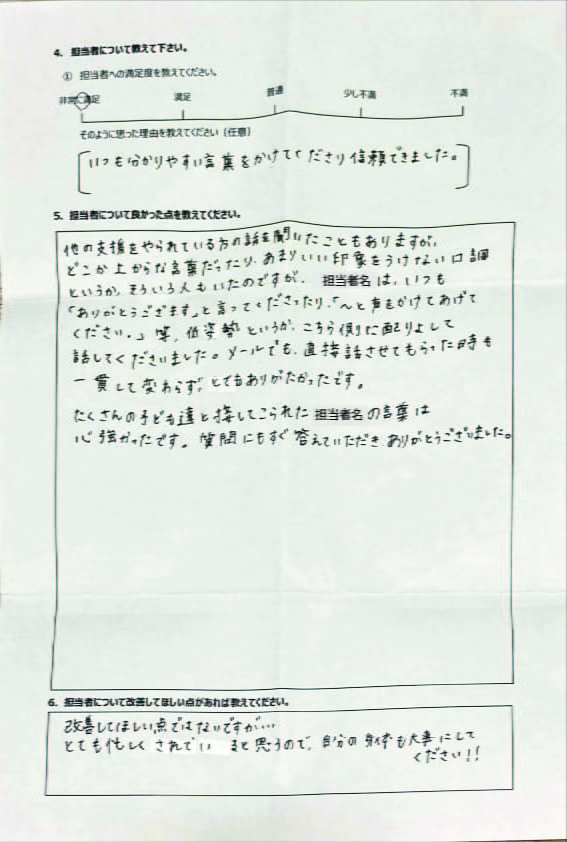 4. 担当者について教えて下さい。
① 担当者への満足度を教えてください。
非常に満足 満足 普通 少し不満 不満
そのように思った理由を教えてください（任意）
いつも分かりやすい言葉をかけてくださり信頼できました。
5. 担当者について良かった点を教えてください。
他の支援をやられている方の話を聞いたこともありますが、
どこか上からな言葉だったり、あまりいい印象をうけない口調
というか、そういう人もいたのですが、担当者名は、いつも
「ありがとうござます」と言ってくださったり、「〜と声をかけてあげて
ください。」等、低姿勢というか、こちら側に配りょして
話してくださいました。メールでも、直接話させてもらった時も
一貫して変わらず、とてもありがたかったです。
たくさんの子ども達と接してこられた 担当者名 の言葉は
心強かったです。質問にもすぐ答えていただき、ありがとうございました。
6. 担当者について改善してほしい点があれば教えてください。
改善してほしい点ではないですが…
とても忙しくされてい まと思うので、自分の身体も大事にして
ください!!